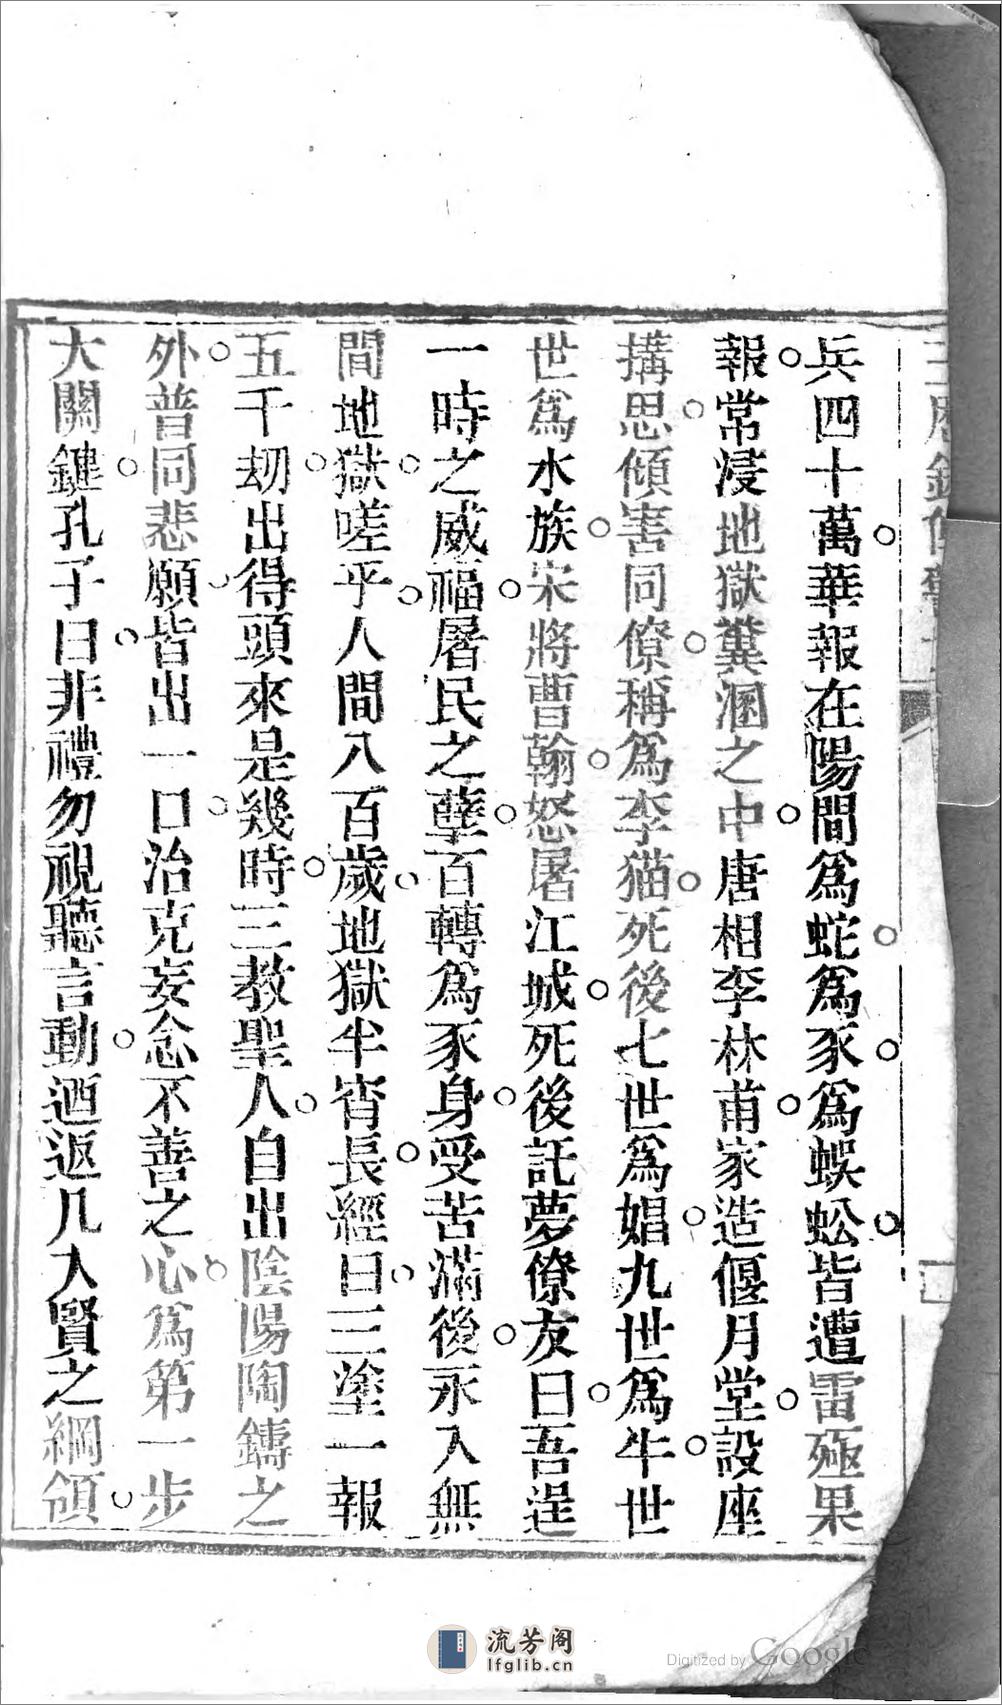 兵四十萬華報在陽間爲蛇爲豕爲蜈蚣皆遭雷殛果
報常浸地獄糞溷之中唐相李林甫家造偃月堂設座
搆思傾害同僚稱爲李猫死後七世爲娼九世爲牛世
世爲水族宋將曹翰怒屠江城死後託夢僚友曰吾逞
一時之威福屠民之孽百轉爲豕身受苦滿後永入無
間地獄嗟乎人間八百歲地獄半宵長經曰三塗一報
五千刼出得頭來是幾時三教聖人自出陰陽陶鑄之
外普同悲願皆出一口治克妄念不善之心爲第一步
大關鍵孔子曰非禮勿視聽言動迺返凡大賢之綱領
流芳阁
lfglib.cn
Digitized by Google